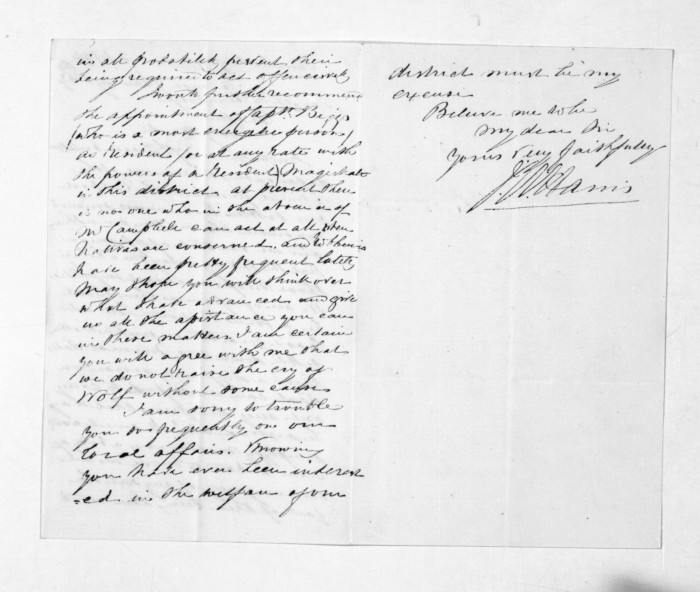 in all probability prevent their
being required to act offensively
I would further recommend
the appointment of Captn. Biggs
(who is a most energetic person)
as Resident (or at any rate with
the powers of a Resident) Magistrate
in this district at present there
is no one who in the absence of
Mr Campbell can act at all when
Natives are concerned, and
have been pretty frequent lately
May I hope you will think over
what I have advanced and give
us all the assistance you can
in these matters. I am certain
you will agree with me that
we do not raise the cry of
Wolf without some cause
I am sorry to trouble
you so frequently on our
local affairs. Knowing
you have ever been interest
=ed in the welfare of our
district must be my
excuse
Believe me to be
my dear Sir
Yours very faithfully
J. W. Harris